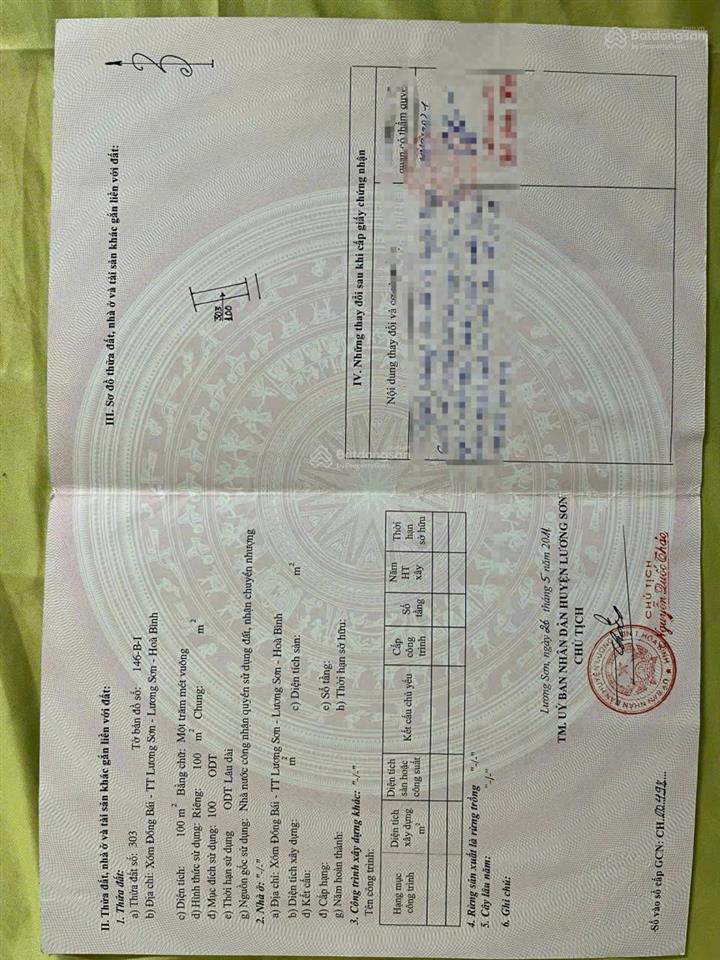 II. Thửa đất, nhà ở và tài sản khác gắn liền với đất:
1. Thửa đất:
a) Thửa đất số: 303 Tờ bản đồ số: 146-B-I
b) Địa chỉ: Xóm Đồng Bái - TT Lương Sơn - Lương Sơn - Hoà Bình
c) Diện tích: 100 m² Bằng chữ: Một trăm mét vuông
d) Hình thức sử dụng: Riêng: 100 m² Chung: m²
đ) Mục đích sử dụng: 100 ODT
e) Thời hạn sử dụng ODT Lâu dài
g) Nguồn gốc sử dụng: Nhà nước công nhận quyền sử dụng đất, nhận chuyển nhượng
2. Nhà ở: "-/-"
a) Địa chỉ: Xóm Đồng Bái - TT Lương Sơn - Lương Sơn - Hoà Bình
b) Diện tích xây dựng: m² c) Diện tích sàn: m²
d) Kết cấu:
đ) Cấp hạng: e) Số tầng:
g) Năm hoàn thành: h) Thời hạn sở hữu:
3. Công trình xây dựng khác: "-/-"
Tên công trình:
Hạng mục công trình
Diện tích xây dựng m²
Diện tích sàn hoặc công suất
Kết cấu chủ yếu
Cấp công trình
Số tầng
Năm HT xây
Thời hạn sở hữu
4. Rừng sản xuất là rừng trồng "-/-"
5. Cây lâu năm: "-/-"
6. Ghi chú:
Lương Sơn, ngày 26 tháng 5 năm 2011
TM. UỶ BAN NHÂN DÂN HUYỆN LƯƠNG SƠN
CHỦ TỊCH
CHỦ TỊCH
Nguyễn Quốc
Số vào sổ cấp GCN: CH
III. Sơ đồ thửa đất, nhà ở và tài sản khác gắn liền với đất:
303
100
IV. Những thay đổi sau khi cấp giấy chứng nhận
Nội dung thay đổi và
quan có thẩm quyề
Batdongsan
by PropertyGuru
Batdongsan
by PropertyGuru